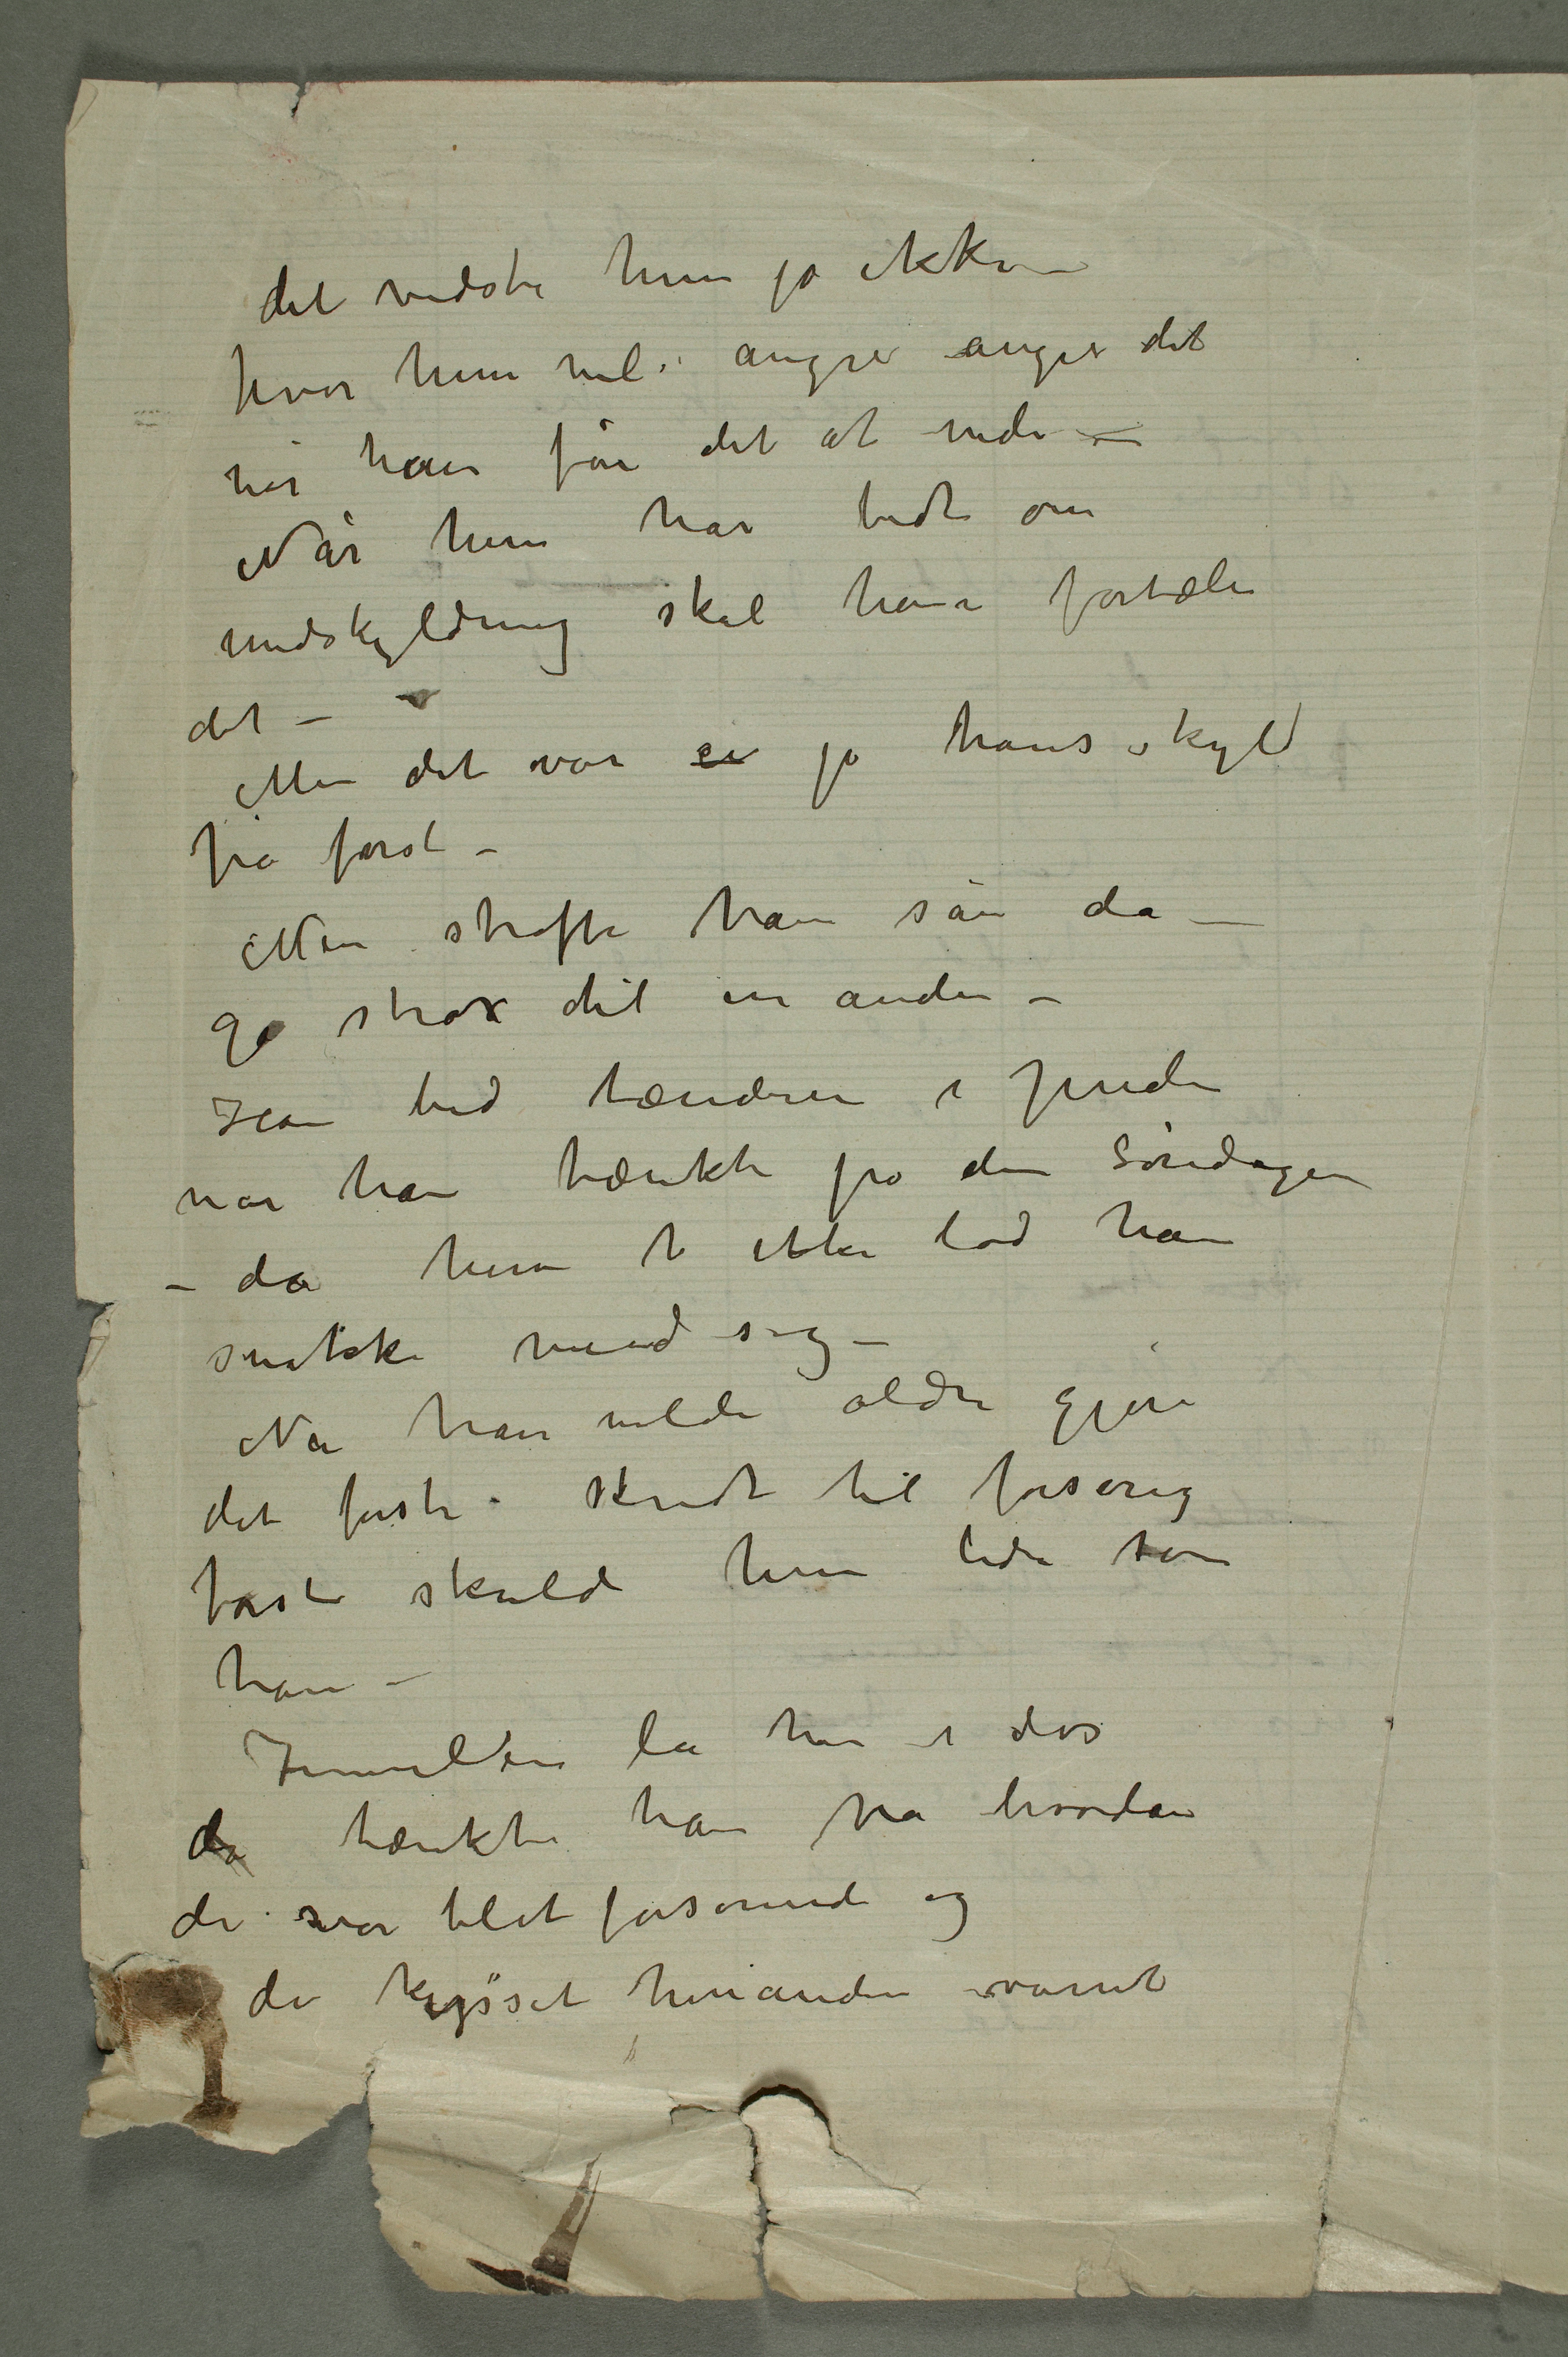 det vidste hun jo ikke –
hvor hun vil angre angre det
når han får det at vide –
Når hun har bedt om
undskyldning skal han fortælle
det –
Men det var ei jo hans skyld
fra først –
Men straffe ham sån da –
gå strax til en anden –
Han bed tænderne i puden
når han tænkte på den Søndagen
– da hun t ikke lod ham
snakke med sig –
Nei han vilde aldri gjøre
det første skridt til forsoning
først skulde hun lide som
han –
Imellem la han i døs
da tænkte han på hvordan
de var blet forsonede og
de kysset hinanden varmt